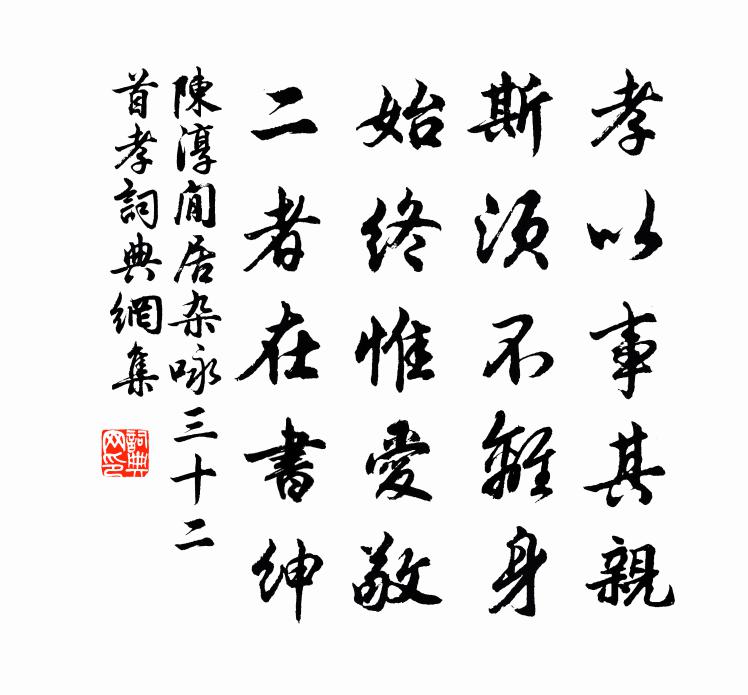 孝以事其親
斯須不離身
始終惟愛敬
二者在書紳
陳淳閒居杂咏三十二
首孝詞典網集
詞典
网印